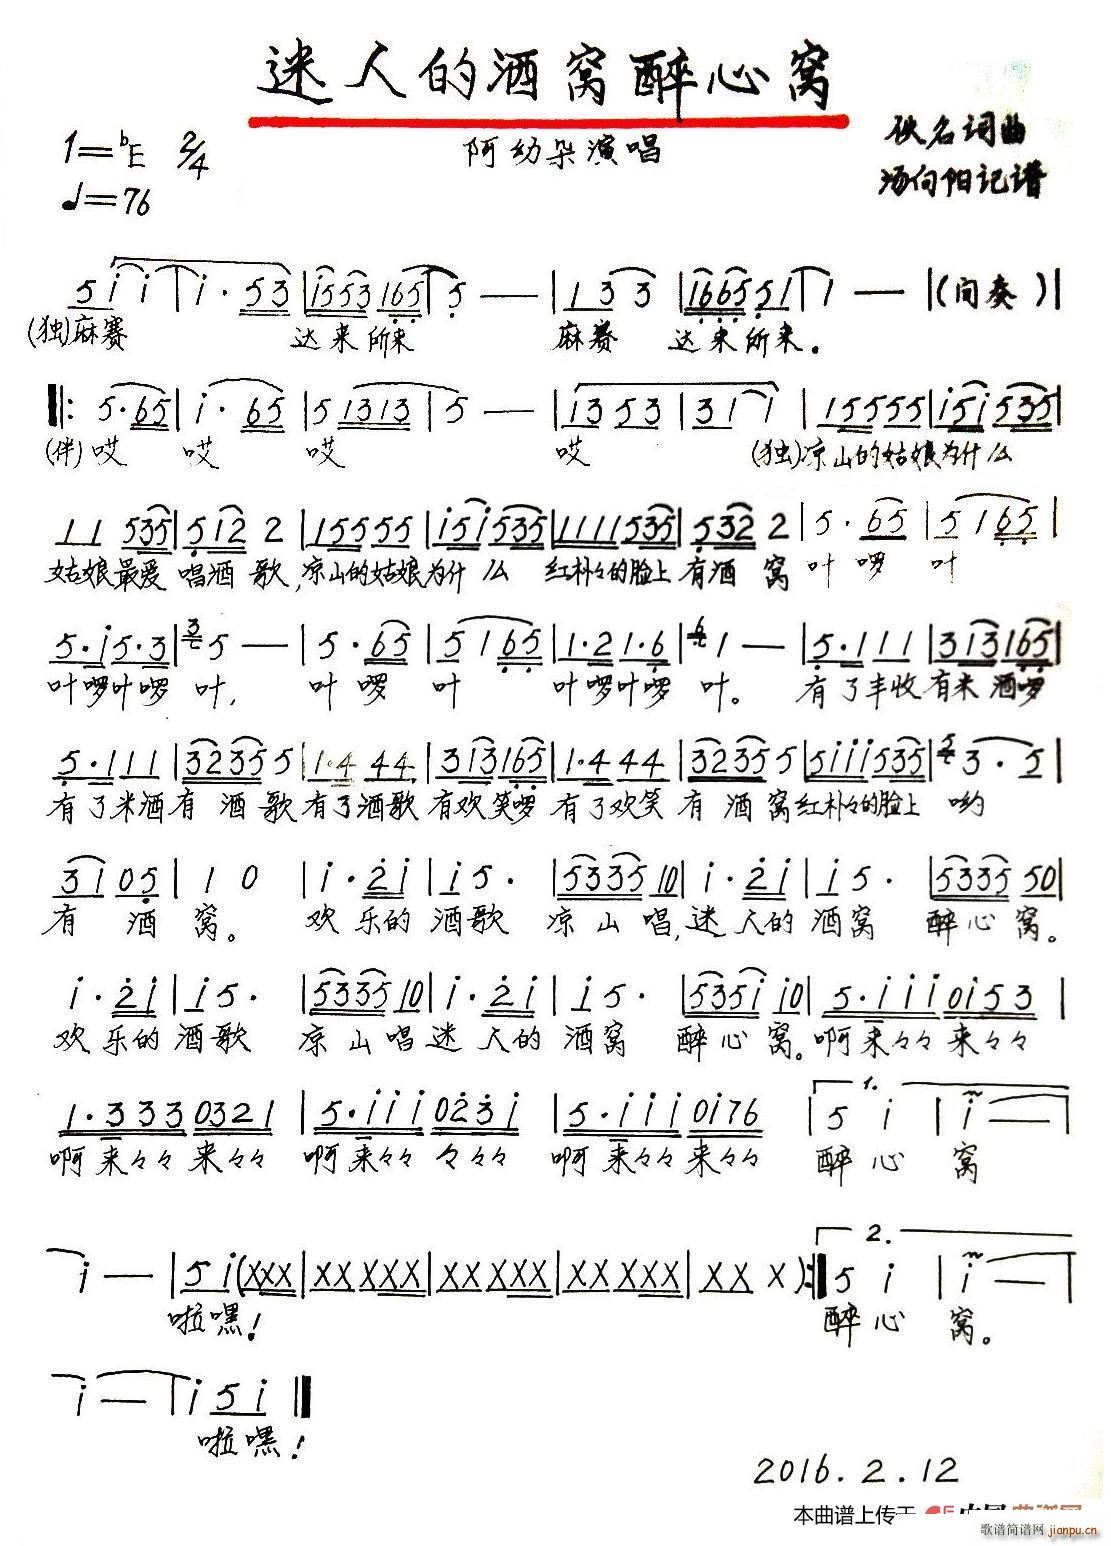 迷人的酒窝醉心窝
1=ᵇE 2/4
阿幼朵演唱
佚名词曲
♩=76
汤向阳记谱
5 i i | i · 5 3 | i 5 5 3 1 6 5 | 5 — | 1 3 3 | 1 6 6 5 5 1 | 1 — | (间奏) |
(独)麻赛 达来所来 麻赛 达来所来。
‖: 5 · 6 5 | i · 6 5 | 5 1 3 1 3 | 5 — | 1 3 5 3 | 3 1 i | 1 5 5 5 5 | i 5 i 5 3 5 |
(伴)哎 哎 哎 哎 (独)凉山的姑娘为什么
1 1 5 3 5 | 5 1 2 2 | 1 5 5 5 5 | i 5 i 5 3 5 | 1 1 1 1 5 3 5 | 5 3 2 2 | 5 · 6 5 | 5 1 6 5 |
姑娘最爱 唱酒歌,凉山的姑娘为什么 红朴々的脸上有酒窝 叶啰 叶
5 · i 5 · 3 | 5 — | 5 · 6 5 | 5 1 6 5 | 1 · 2 1 · 6 | 1 — | 5 · 1 1 1 | 3 1 3 1 6 5 |
叶啰叶啰 叶, 叶啰 叶 叶啰叶啰 叶。 有了丰收有米酒啰
5 · 1 1 1 | 3 2 3 5 5 | 1 · 4 4 4 | 3 1 3 1 6 5 | 1 · 4 4 4 | 3 2 3 5 5 | 5 i i i 5 3 5 | 3 · 5 |
有了米酒有酒歌有了酒歌有欢笑啰有了欢笑有酒窝红朴々的脸上 哟
3 1 0 5 | 1 0 | i · 2 i | i 5 · | 5 3 3 5 1 0 | i · 2 i | i 5 · | 5 3 3 5 5 0 |
有 酒窝。 欢乐的酒歌 凉山唱,迷人的酒窝 醉心窝。
i · 2 i | i 5 · | 5 3 3 5 1 0 | i · 2 i | i 5 · | 5 3 5 i i 0 | 5 · i i i 0 i 5 3 |
欢乐的酒歌 凉山唱迷人的酒窝 醉心窝。啊来々々来々々
1 · 3 3 3 0 3 2 1 | 5 · i i i 0 2 3 i | 5 · i i i 0 i 7 6 | 1. 5 i | i — |
啊来々々来々々 啊来々々々々々 啊来々々来々々 醉心 窝
i — | 5 i (X X X | X X X X X | X X X X X | X X X X X | X X X) :‖ 2. 5 i | i — |
啦嘿! 醉心 窝。
i — | i 5 i ‖
啦嘿!
2016.2.12
本曲谱上传于
歌谱简谱网 jianpu.cn